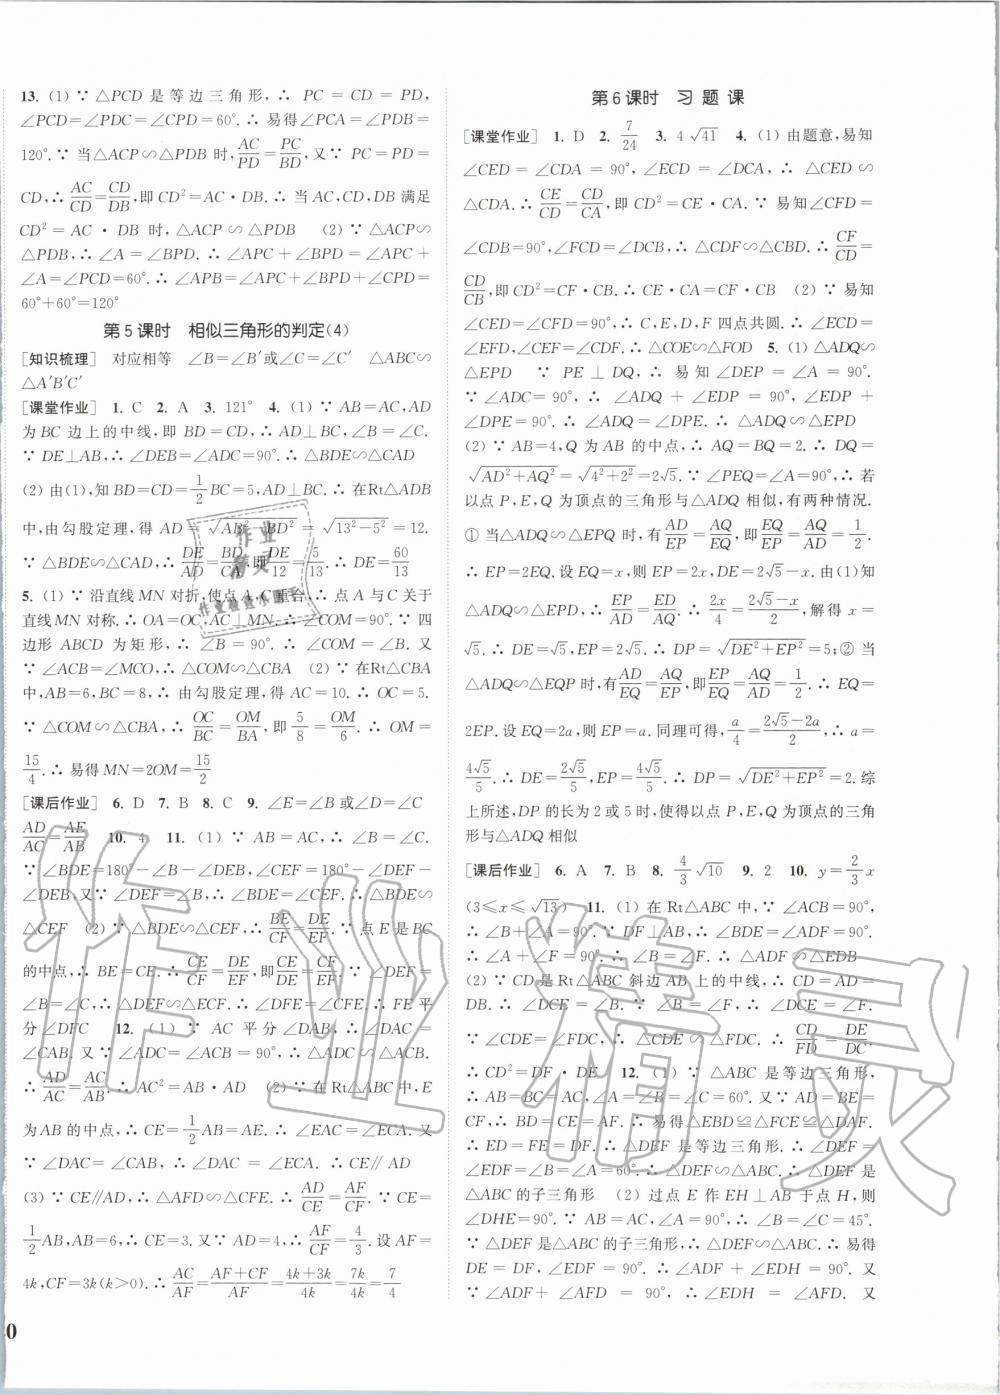 13. (1) ∵ △PCD 是等边三角形,∴ PC = CD = PD,
∠PCD=∠PDC=∠CPD=60°.∴ 易得∠PCA=∠PDB=
120°.∵ 当△ACP∽△PDB 时,AC/PD=PC/BD,又∵ PC=PD=
CD,∴ AC/CD=CD/DB,即 CD²=AC·DB.∴ 当 AC,CD,DB 满足
CD²=AC·DB 时,△ACP∽△PDB (2) ∵ △ACP∽
△PDB,∴ ∠A=∠BPD.∴ ∠APC+∠BPD=∠APC
+∠A=∠PCD=60°.∴ ∠APB=∠APC+∠BPD+∠CPD=
60°+60°=120°
第5课时 相似三角形的判定(4)
[知识梳理] 对应相等 ∠B=∠B′或∠C=∠C′ △ABC∽
△A′B′C′
[课堂作业] 1. C 2. A 3. 121° 4. (1) ∵ AB=AC,AD
为BC 边上的中线,即 BD=CD,∴ AD⊥BC,∠B=∠C.
∵ DE⊥AB,∴ ∠DEB=∠ADC=90°.∴ △BDE∽△CAD
(2) 由(1),知 BD=CD=1/2BC=5,AD⊥BC.∴ 在Rt△ADB
中,由勾股定理,得 AD=√(AB²-BD²)=√(13²-5²)=12.
∵ △BDE∽△CAD,∴ DE/AD=BD/CA,即DE/12=5/13.∴ DE=60/13
5. (1) ∵ 沿直线 MN 对折,使点 A,C 重合,∴ 点 A 与 C 关于
直线 MN 对称.∴ OA=OC,AC⊥MN.∴ ∠COM=90°.∵ 四
边形 ABCD 为矩形,∴ ∠B=90°.∴ ∠COM=∠B. 又
∵ ∠ACB=∠MCO,∴ △COM∽△CBA (2) ∵ 在Rt△CBA
中,AB=6,BC=8,∴ 由勾股定理,得 AC=10.∴ OC=5.
∵ △COM∽△CBA,∴ OC/BC=OM/BA,即5/8=OM/6.∴ OM=
15/4.∴ 易得MN=2OM=15/2
[课后作业] 6. D 7. B 8. C 9. ∠E=∠B或∠D=∠C或
AD/AC=AE/AB 10. 4 11. (1) ∵ AB=AC,∴ ∠B=∠C.
∵ ∠BDE=180°-∠B-∠DEB,∠CEF=180°-∠DEF-
∠DEB,又∵ ∠DEF=∠B,∴ ∠BDE=∠CEF.∴ △BDE∽
△CEF (2) ∵ △BDE∽△CEF,∴ BE/CF=DE/EF.∵ 点 E是BC
的中点,∴ BE=CE.∴ CE/CF=DE/EF,即CE/DE=CF/EF.∵ ∠DEF=
∠B=∠C,∴ △DEF∽△ECF.∴ ∠DFE=∠CFE.∴ FE平
分∠DFC 12. (1) ∵ AC 平分∠DAB,∴ ∠DAC=
∠CAB. 又∵ ∠ADC=∠ACB=90°,∴ △ADC∽△ACB.
∴ AD/AC=AC/AB.∴ AC²=AB·AD (2) ∵ 在Rt△ABC中,E
为AB的中点,∴ CE=1/2AB=AE.∴ ∠EAC=∠ECA. 又
∵ ∠DAC=∠CAB,∴ ∠DAC=∠ECA.∴ CE∥AD
(3) ∵ CE∥AD,∴ △AFD∽△CFE.∴ AD/CE=AF/CF.∵ CE=
1/2AB,AB=6,∴ CE=3. 又∵ AD=4,∴ AF/CF=4/3. 设 AF=
4k,CF=3k(k>0).∴ AC/AF=(AF+CF)/AF=(4k+3k)/4k=7k/4k=7/4
第6课时 习题课
[课堂作业] 1. D 2. 7/24 3. 4√41 4. (1) 由题意,易知
∠CED=∠CDA=90°,∠ECD=∠DCA,∴ △CED∽
△CDA.∴ CE/CD=CD/CA,即 CD²=CE·CA.∵ 易知∠CFD=
∠CDB=90°,∠FCD=∠DCB,∴ △CDF∽△CBD.∴ CF/CD=
CD/CB,即CD²=CF·CB.∴ CE·CA=CF·CB (2) ∵ 易知
∠CED=∠CFD=90°,∴ C,E,D,F 四点共圆.∴ ∠ECD=
∠EFD,∠CEF=∠CDF.∴ △COE∽△FOD 5. (1) △ADQ∽
△EPD ∵ PE⊥DQ,∴ 易知∠DEP=∠A=90°.
∵ ∠ADC=90°,∴ ∠ADQ+∠EDP=90°,∠EDP+
∠DPE=90°.∴ ∠ADQ=∠DPE.∴ △ADQ∽△EPD
(2) ∵ AB=4,Q 为 AB 的中点,∴ AQ=BQ=2.∴ DQ=
√(AD²+AQ²)=√(4²+2²)=2√5.∵ ∠PEQ=∠A=90°,∴ 若
以点 P,E,Q 为顶点的三角形与△ADQ 相似,有两种情况.
① 当△ADQ∽△EPQ 时,有AD/EP=AQ/EQ,即EQ/EP=AQ/AD=1/2.
∴ EP=2EQ. 设 EQ=x,则 EP=2x,DE=2√5-x.由(1)知
△ADQ∽△EPD,∴ EP/AD=ED/AQ.∴ 2x/4=(2√5-x)/2,解得 x=
√5.∴ DE=√5,EP=2√5.∴ DP=√(DE²+EP²)=5;② 当
△ADQ∽△EQP 时,有AD/EQ=AQ/EP,即EP/EQ=AQ/AD=1/2.∴ EQ=
2EP. 设 EQ=2a,则 EP=a. 同理可得,a/4=(2√5-2a)/2,∴ a=
4√5/5.∴ DE=2√5/5,EP=4√5/5.∴ DP=√(DE²+EP²)=2.综
上所述,DP 的长为 2 或 5 时,使得以点 P,E,Q 为顶点的三角
形与△ADQ 相似
[课后作业] 6. A 7. B 8. 4/3√10 9. 2 10. y=2/3x
(3≤x≤√13) 11. (1) 在 Rt△ABC 中,∵ ∠ACB=90°,
∴ ∠A+∠B=90°.∵ DF⊥AB,∴ ∠BDE=∠ADF=90°.
∴ ∠A+∠F=90°.∴ ∠B=∠F.∴ △ADF∽△EDB
(2) ∵ CD是 Rt△ABC 斜边 AB 上的中线,∴ CD=AD=
DB.∴ ∠DCE=∠B. ∵ ∠B=∠F,∴ ∠DCE=∠F.
∵ ∠CDE=∠FDC,∴ △CDE∽△FDC.∴ CD/FD=DE/DC.
∴ CD²=DF·DE. 12. (1) ∵ △ABC 是等边三角形,
∴ AB=BC=AC,∠A=∠B=∠C=60°. 又∵ AD=BE=
CF,∴ BD=CE=AF.∴ 易得△EBD≌△FCE≌△DAF.
∴ ED=FE=DF.∴ △DEF 是等边三角形.∴ ∠DEF=
∠EDF=∠B=∠A=60°.∴ △DEF∽△ABC.∴ △DEF 是
△ABC 的子三角形 (2) 过点 E 作 EH⊥AB 于点 H,则
∠DHE=90°.∵ AB=AC,∠A=90°,∴ ∠B=∠C=45°.
∵ △DEF 是△ABC的子三角形,∴ △DEF∽△ABC.∴ 易得
DE=DF,∠EDF=90°.∴ ∠ADF+∠EDH=90°.
∵ ∠ADF+∠AFD=90°,∴ ∠EDH=∠AFD. 又
作业精灵
作业检查小助手